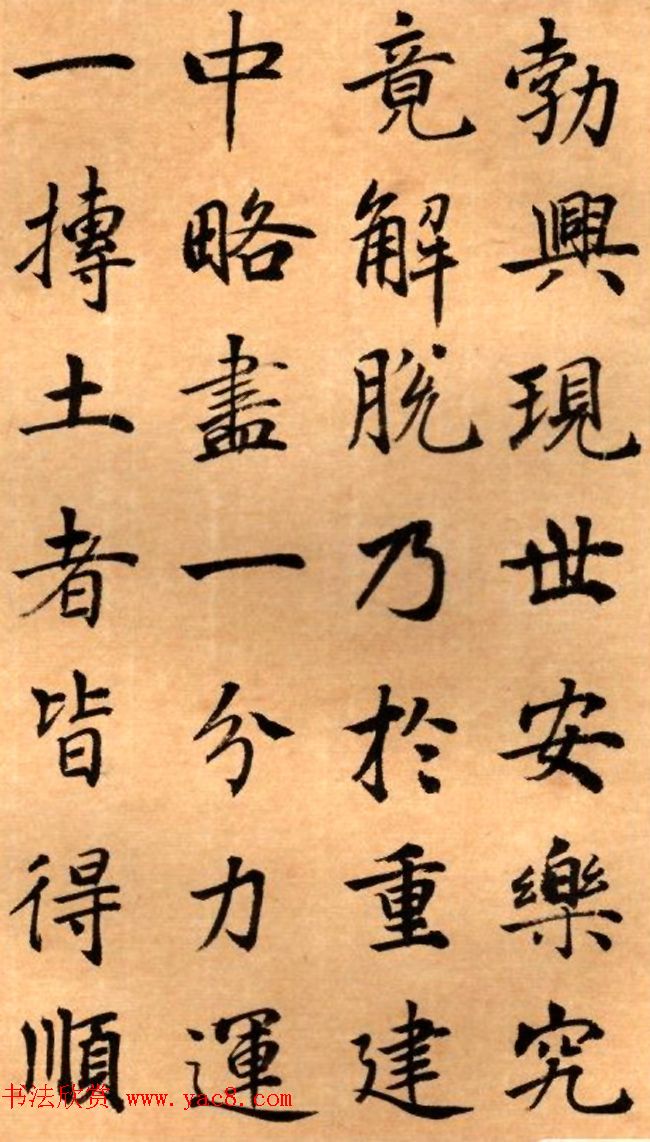 勃興現世安樂究
竟解脫乃於重建
中略盡一分力運
一摶土者皆得順
书法欣赏 www.yac8.com